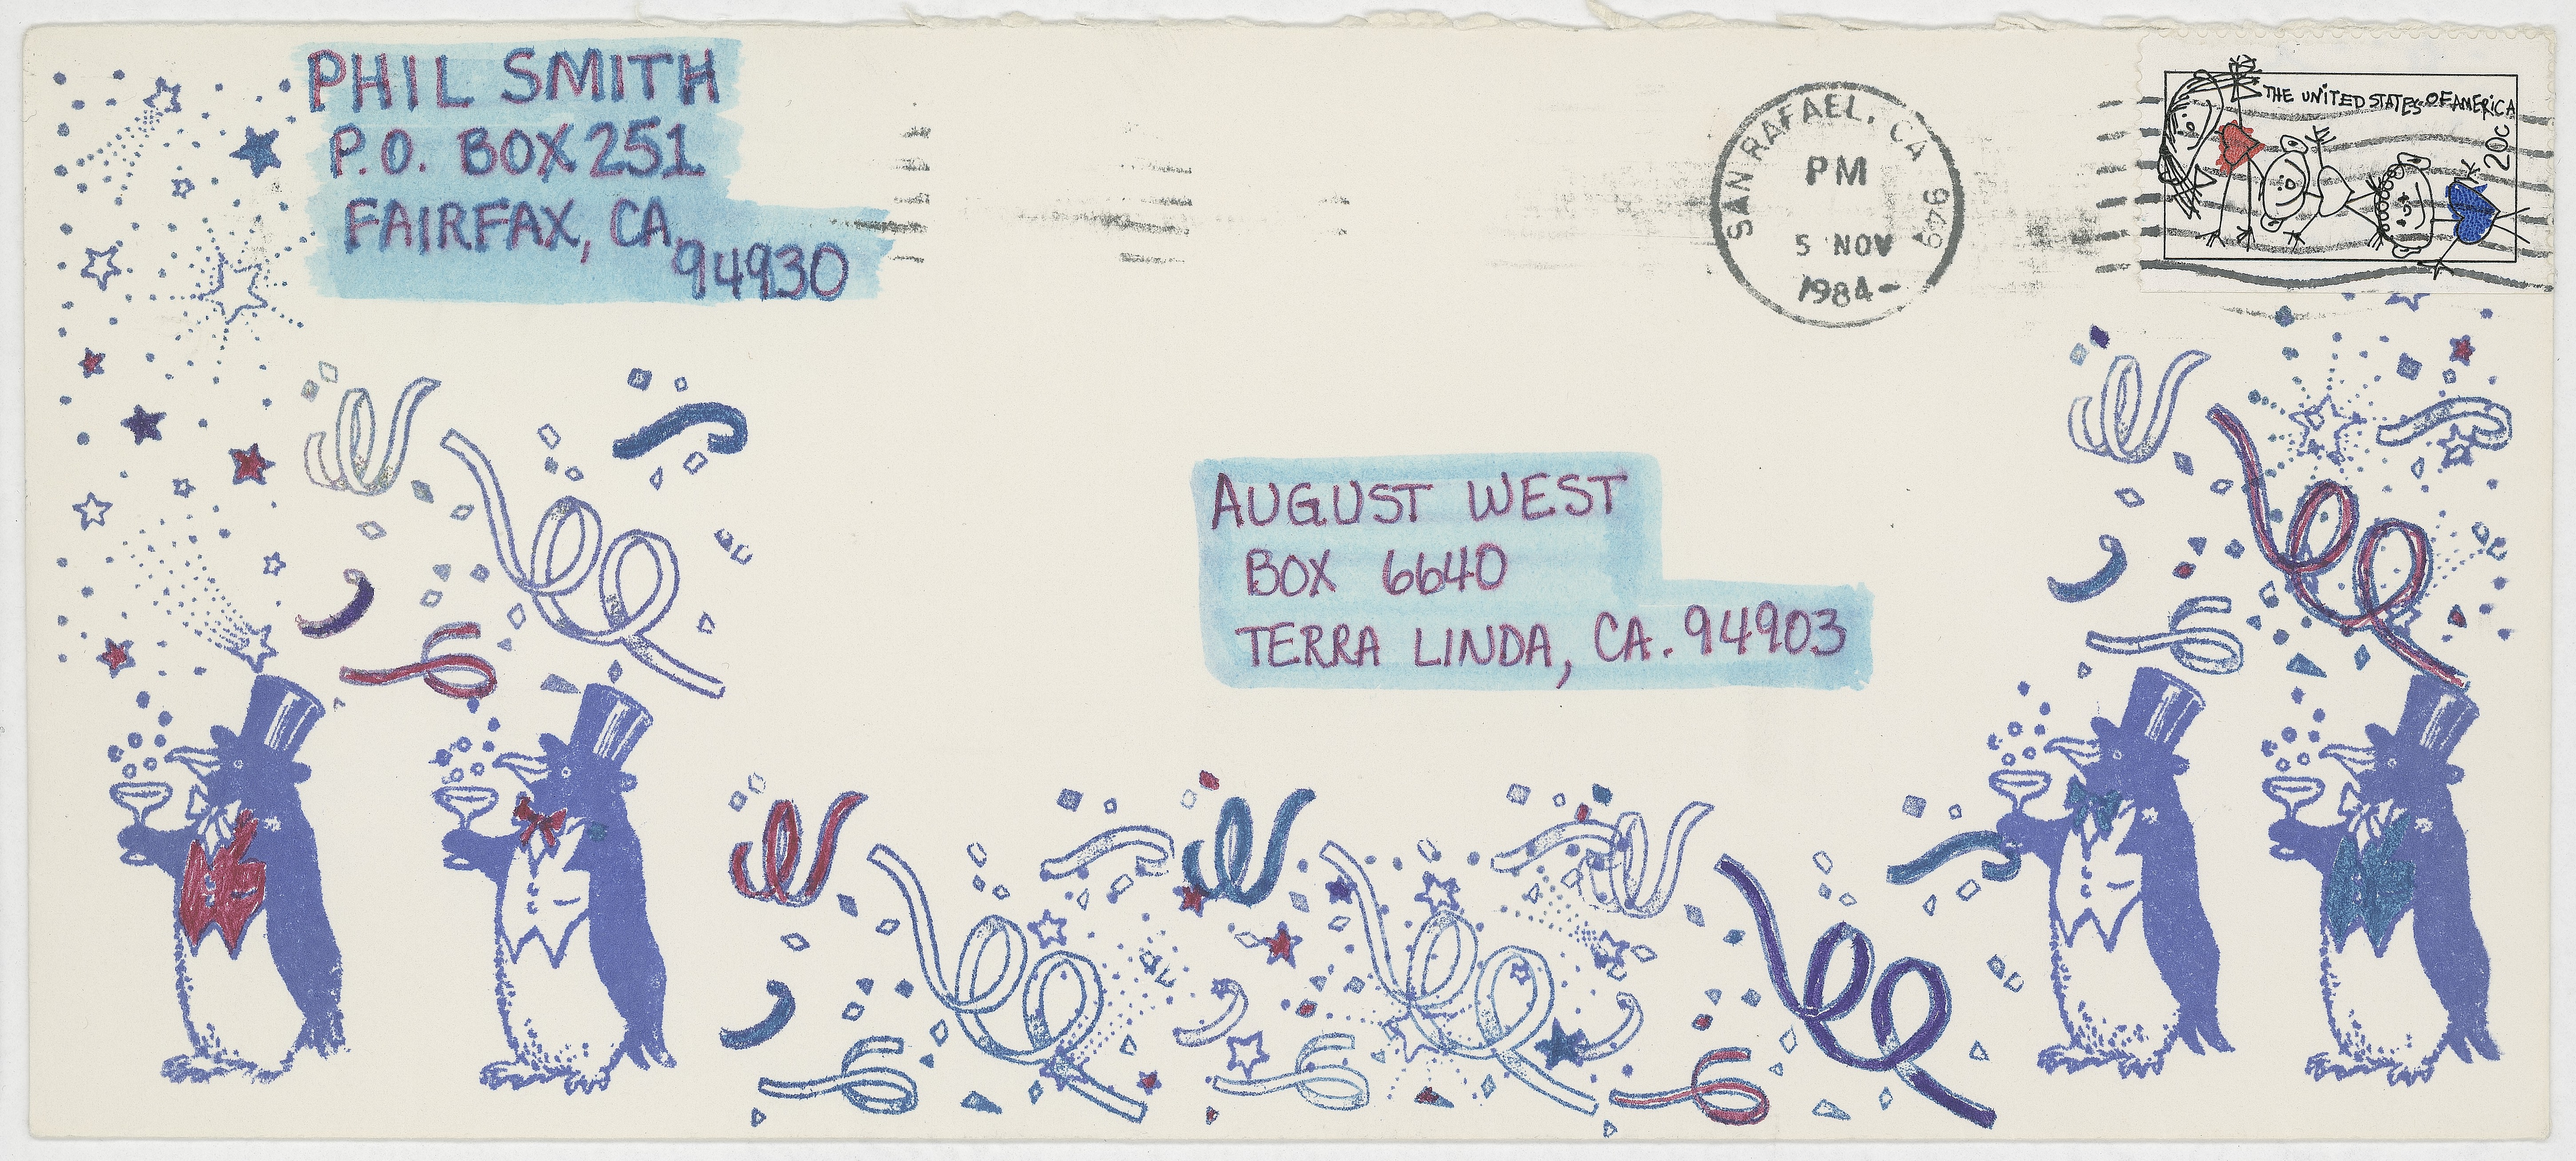 PHIL SMITH
P.O. BOX 251
FAIRFAX, CA
94930
SAN RAFAEL, CA 949
PM
5 NOV
1984
THE UNITED STATES OF AMERICA
20c
AUGUST WEST
BOX 6640
TERRA LINDA, CA. 94903